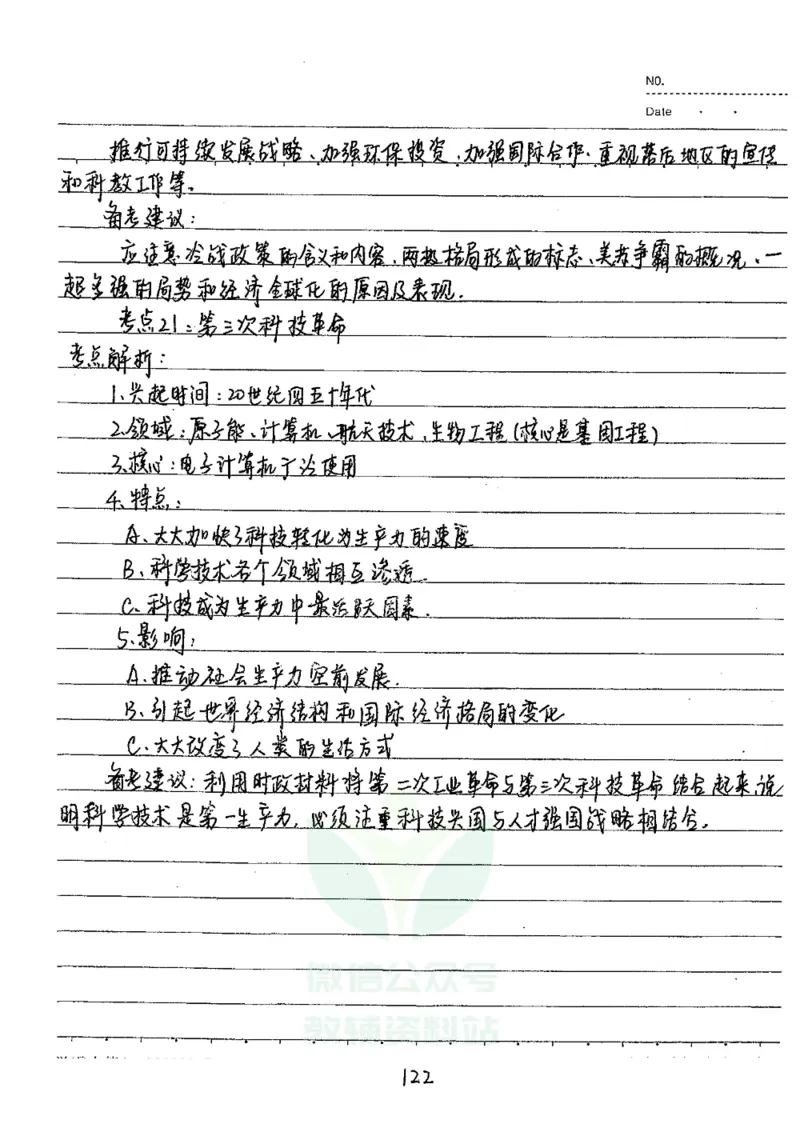 NO.
Date
推行可持续发展战略、加强环保投资、加强国际合作、重视落后地区的宣传
和科教工作等。
备考建议:
应注意冷战政策的含义和内容、两极格局形成的标志、美苏争霸的概况、一
超多强的局势和经济全球化的原因及表现.
考点21:第三次科技革命
考点解析:
1.兴起时间:20世纪四五十年代
2.领域:原子能、计算机、航天技术、生物工程(核心是基因工程)
3.核心:电子计算机广泛使用
4.特点:
A、大大加快了科技转化为生产力的速度
B、科学技术各个领域相互渗透.
C、科技成为生产力中最活跃因素.
5.影响:
A.推动社会生产力空前发展.
B.引起世界经济结构和国际经济格局的变化
C.大大改变了人类的生活方式
备考建议:利用时政材料将第二次工业革命与第三次科技革命结合起来,说
明科学技术是第一生产力,必须注重科技兴国与人才强国战略相结合。
微信公众号
教辅资料站
122